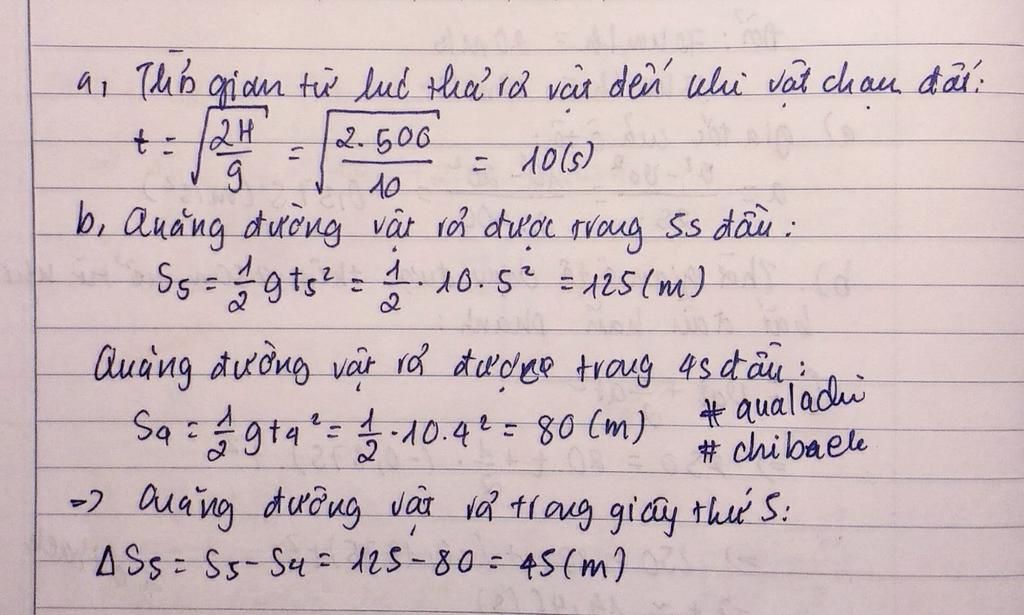 a, Thời gian từ lúc thả rơi vật đến khi vật chạm đất:
t = √(2H/g) = √(2.500/10) = 10(s)
b, Quãng đường vật rơi được trong 5s đầu:
S5 = 1/2 gt5² = 1/2 . 10 . 5² = 125(m)
Quãng đường vật rơi được trong 4s đầu:
S4 = 1/2 gt4² = 1/2 . 10 . 4² = 80(m)
# qualachi
# chibaek
=> Quãng đường vật rơi trong giây thứ 5:
ΔS5 = S5 - S4 = 125 - 80 = 45(m)